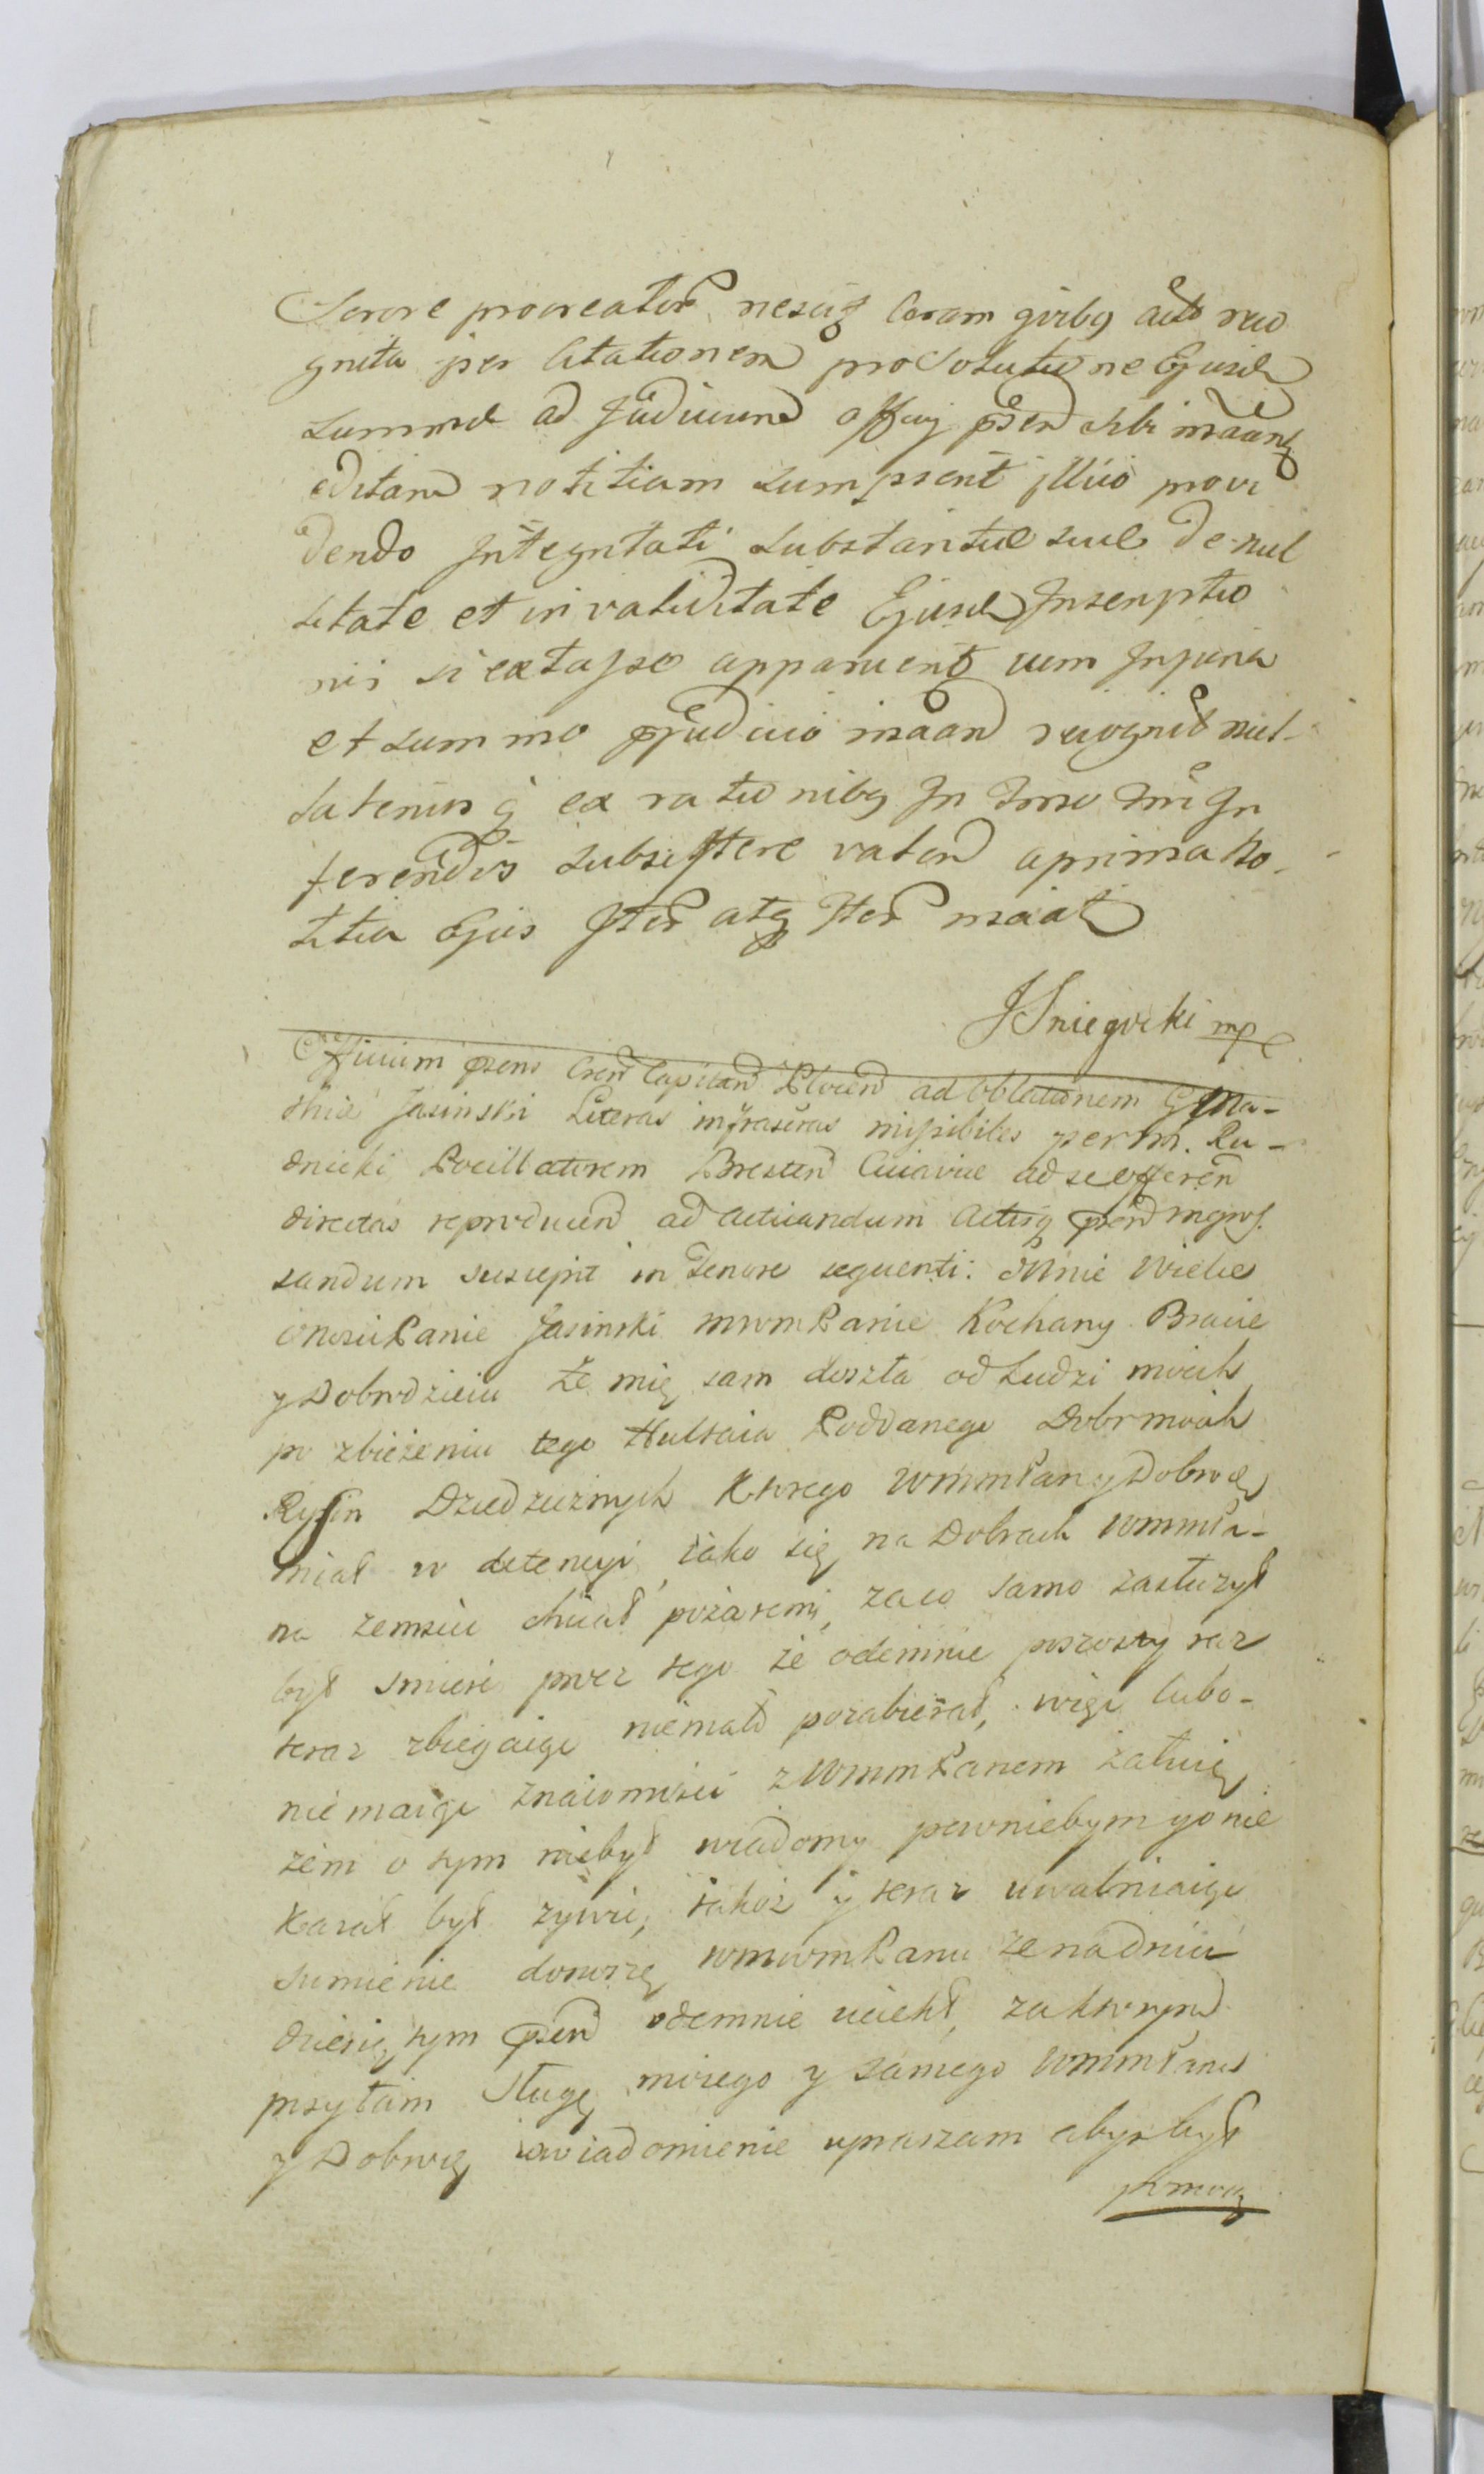 Sorore procreator nesciꝫ coram qvibꝫ actis reco
gnita per Citationem pro Solutione Ejusd
Summae ad Judicium Officij pñtn sibi
editam notitiam sumpserit illico provi
dendo Integritati Substantiae suae de nul
litate et invaliditate Ejusd Inscriptio
nis si extasse apparuerit cum Injuria
et summo pjudicio recognit nul-
latenus q̃ ex rationibꝫ In
ferendis subsistere valen a prima No-
titia Ejus Iter atqꝫ Iter
JSniegocki mp
Officium psens Cren Capitan Plocen ad Oblationem G Ma-
thiae Jasinski Literas infrascras missibiles per M. Ru-
dnicki Pocillatorem Bresten Cujaviae ad se offeren
directas reproducen ad acticandum Actisq psen ingros-
sandum suscepit in Tenore sequenti: Mnie Wielce
Mosci Panie Jasinski mwm Panie Kochany Bracie
y Dobrodzieiu że mię sam doszła od Ludzi moich
po zbieżeniu tego Hultaia Poddanego Dobr moich
Rysin Dziedzicznych Ktorego wmm Pan y Dobrodz
miał w detencyi, iako się na Dobrach wmm Pa-
na zemścić chciał pożarem, za co samo zasłuzył
był śmierć procz tego że odemnie pszoszy raz
teraz zbiegaiąc niemało pozabierał, więc lubo-
nie maiąc znaiomości z wmm Panem żałuię
żem o tym niebył wiadomy pewniebym go nie
kazał był zywic, iakoż y teraz uwalniaiąc
sumienie donoszę wmwm Panu że na dniu
dziesiątym psen odemnie uciekł, za ktorym
przyłam Sługę moiego y samego wmm Pana
y Dobrodz uwiadomienie upraszam abyś był